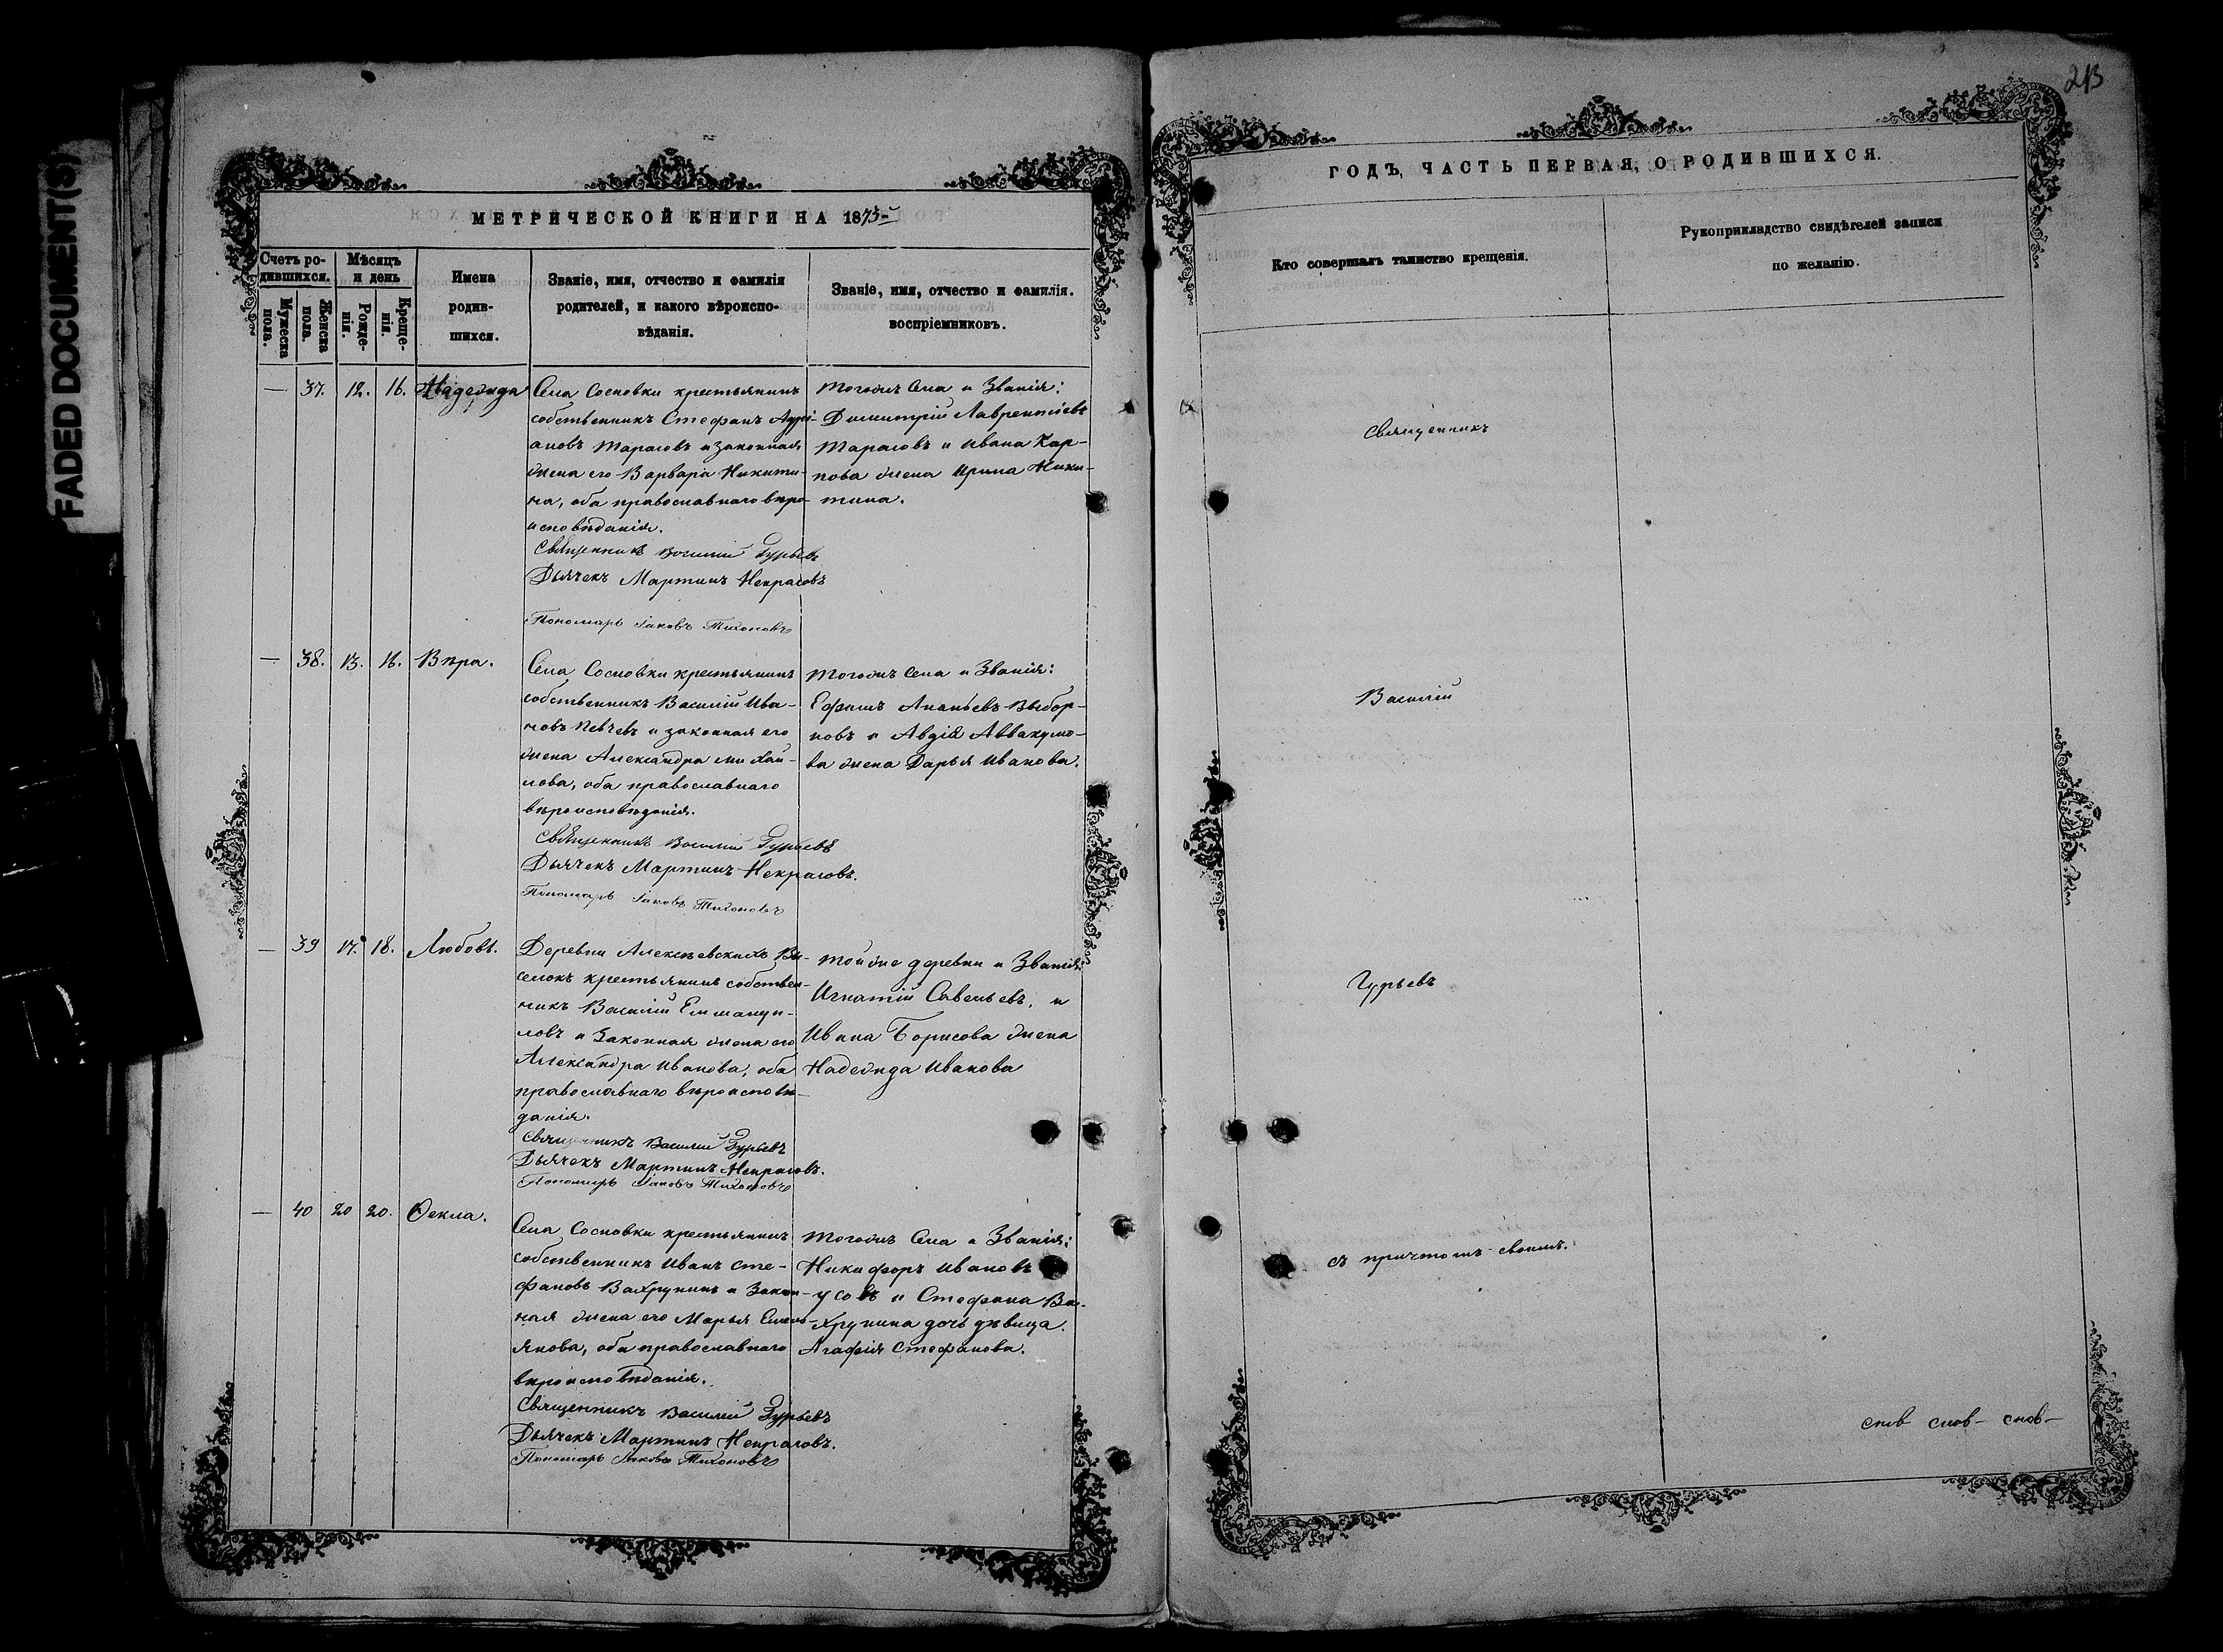 FADED DOCUMENT(S)
МЕТРИЧЕСКОЙ КНИГИ НА 1873-й
Счетъ ро-
дившихся.
Мужеска
пола.
Женска
пола.
Мѣсяцъ
и день
Рожде-
нія.
Креще-
нія.
Имена
родив-
шихся.
Званіе, имя, отчество и фамилія
родителей, и какого вѣроиспо-
вѣданія.
Званіе, имя, отчество и фамилія.
воспріемниковъ.
— 37. 12. 16. Надежда
Села Сосновки крестьянинъ
собственникъ Стефанъ Адрі-
ановъ Тарасовъ и законная
жена его Варвара Никити-
на, оба православнаго вѣро-
исповѣданія.
Священникъ Василій Гурьевъ
Дьячекъ Мартинъ Некрасовъ
Пономарь Іаковъ Тихоновъ
Тогожъ Села и Званія:
Димитрій Лаврентіевъ
Тарасовъ и Ивана Кар-
пова жена Ирина Ники-
тина.
— 38. 13. 16. Вѣра.
Села Сосновки крестьянинъ
собственникъ Василій Ива-
новъ Певчевъ и законная его
жена Александра Михаи-
лова, оба православнаго
вѣроисповѣданія.
Священникъ Василій Гурьевъ
Дьячекъ Мартинъ Некрасовъ.
Пономарь Іаковъ Тихоновъ
Тогожъ Села и Званія:
Ефимъ Ананьевъ Выбор-
новъ и Авдія Аввакумо-
ва жена Дарья Иванова.
— 39 17. 18. Любовь.
Деревни Алексѣевскихъ Вы-
селокъ крестьянинъ собствен-
никъ Василій Еммануи-
ловъ и Законная жена его
Александра Иванова, оба
православнаго вѣроисповѣ-
данія.
Священникъ Василій Гурьевъ
Дьячекъ Мартинъ Некрасовъ.
Пономарь Іаковъ Тихоновъ
Той же деревни и Званія:
Игнатій Савельевъ, и
Ивана Борисова жена
Надежда Иванова
— 40 20 20. Ѳекла.
Села Сосновки крестьянинъ
собственникъ Иванъ Сте-
фановъ Вахрунинъ и Закон-
ная жена его Марья Емель-
янова, оба православнаго
вѣроисповѣданія.
Священникъ Василій Гурьевъ
Дьячекъ Мартинъ Некрасовъ.
Пономарь Іаковъ Тихоновъ
Тогожъ Села и Званія:
Никифоръ Ивановъ
усовъ и Стефана Ва-
хрунина дочь дѣвица
Агафія Стефанова.
213
ГОДЪ, ЧАСТЬ ПЕРВАЯ, О РОДИВШИХСЯ.
Кто совершалъ таинство крещенія.
Рукоприкладство свидѣтелей записи
по желанію.
Священникъ
Василій
Гурьевъ
съ причтомъ своимъ.